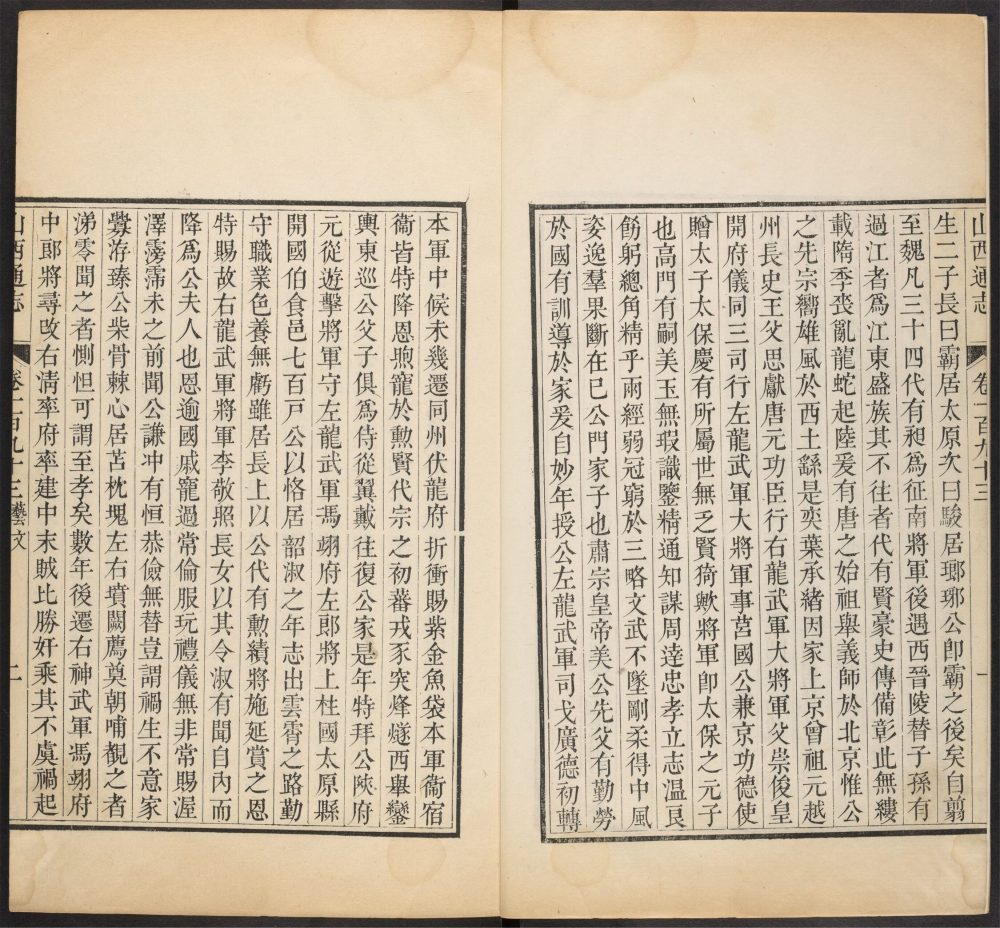 山西通志 卷一百九十三 一
生二子長曰霸居太原次曰駿居瑯琊公卽霸之後矣自翦
至魏凡三十四代有昶爲征南將軍後遇西晉陵替子孫有
過江者爲江東盛族其不往者代有賢豪史傳備彰此無縷
載隋季喪亂龍蛇起陸爰有唐之始祖舉義師於北京惟公
之先宗嚮雄風於西土繇是奕葉承緒因家上京曾祖元越
州長史王父思獻唐元功臣行右龍武軍大將軍父崇俊皇
開府儀同三司行左龍武軍大將軍事莒國公兼京功德使
贈太子太保慶有所屬世無乏賢猗歟將軍卽太保之元子
也高門有嗣美玉無瑕識鑒精通知謀周達忠孝立志温良
飭躬總角精乎兩經弱冠窮於三略文武不墜剛柔得中風
姿逸羣果斷在已公門家子也肅宗皇帝美公先父有勤勞
於國有訓導於家爰自妙年授公左龍武軍司戈廣德初轉
本軍中候未幾遷同州伏龍府折衝賜紫金魚袋本軍衞宿
衞皆特降恩煦寵於勲賢代宗之初蕃戎豕突烽燧西舉鑾
輿東巡公父子俱爲侍從翼戴往復公家是年特拜公陝府
元從遊擊將軍守左龍武軍馮翊府左郎將上柱國太原縣
開國伯食邑七百戸公以恪居韶淑之年志出雲霄之路勤
守職業色養無虧雖居長上以公代有勲績將施延賞之恩
特賜故右龍武軍將軍李敬照長女以其令淑有聞自內而
降爲公夫人也恩逾國戚寵過常倫服玩禮儀無非常賜渥
澤霶霈未之前聞公謙冲有恒恭儉無替豈謂禍生不意家
釁洊臻公柴骨棘心居苫枕塊左右墳闕薦奠朝哺覩之者
涕零聞之者惻怛可謂至孝矣數年後遷右神武軍馮翊府
中郎將尋改右淸率府率建中末賊比勝奸乘其不虞禍起
山西通志 卷一百九十三 藝文 二